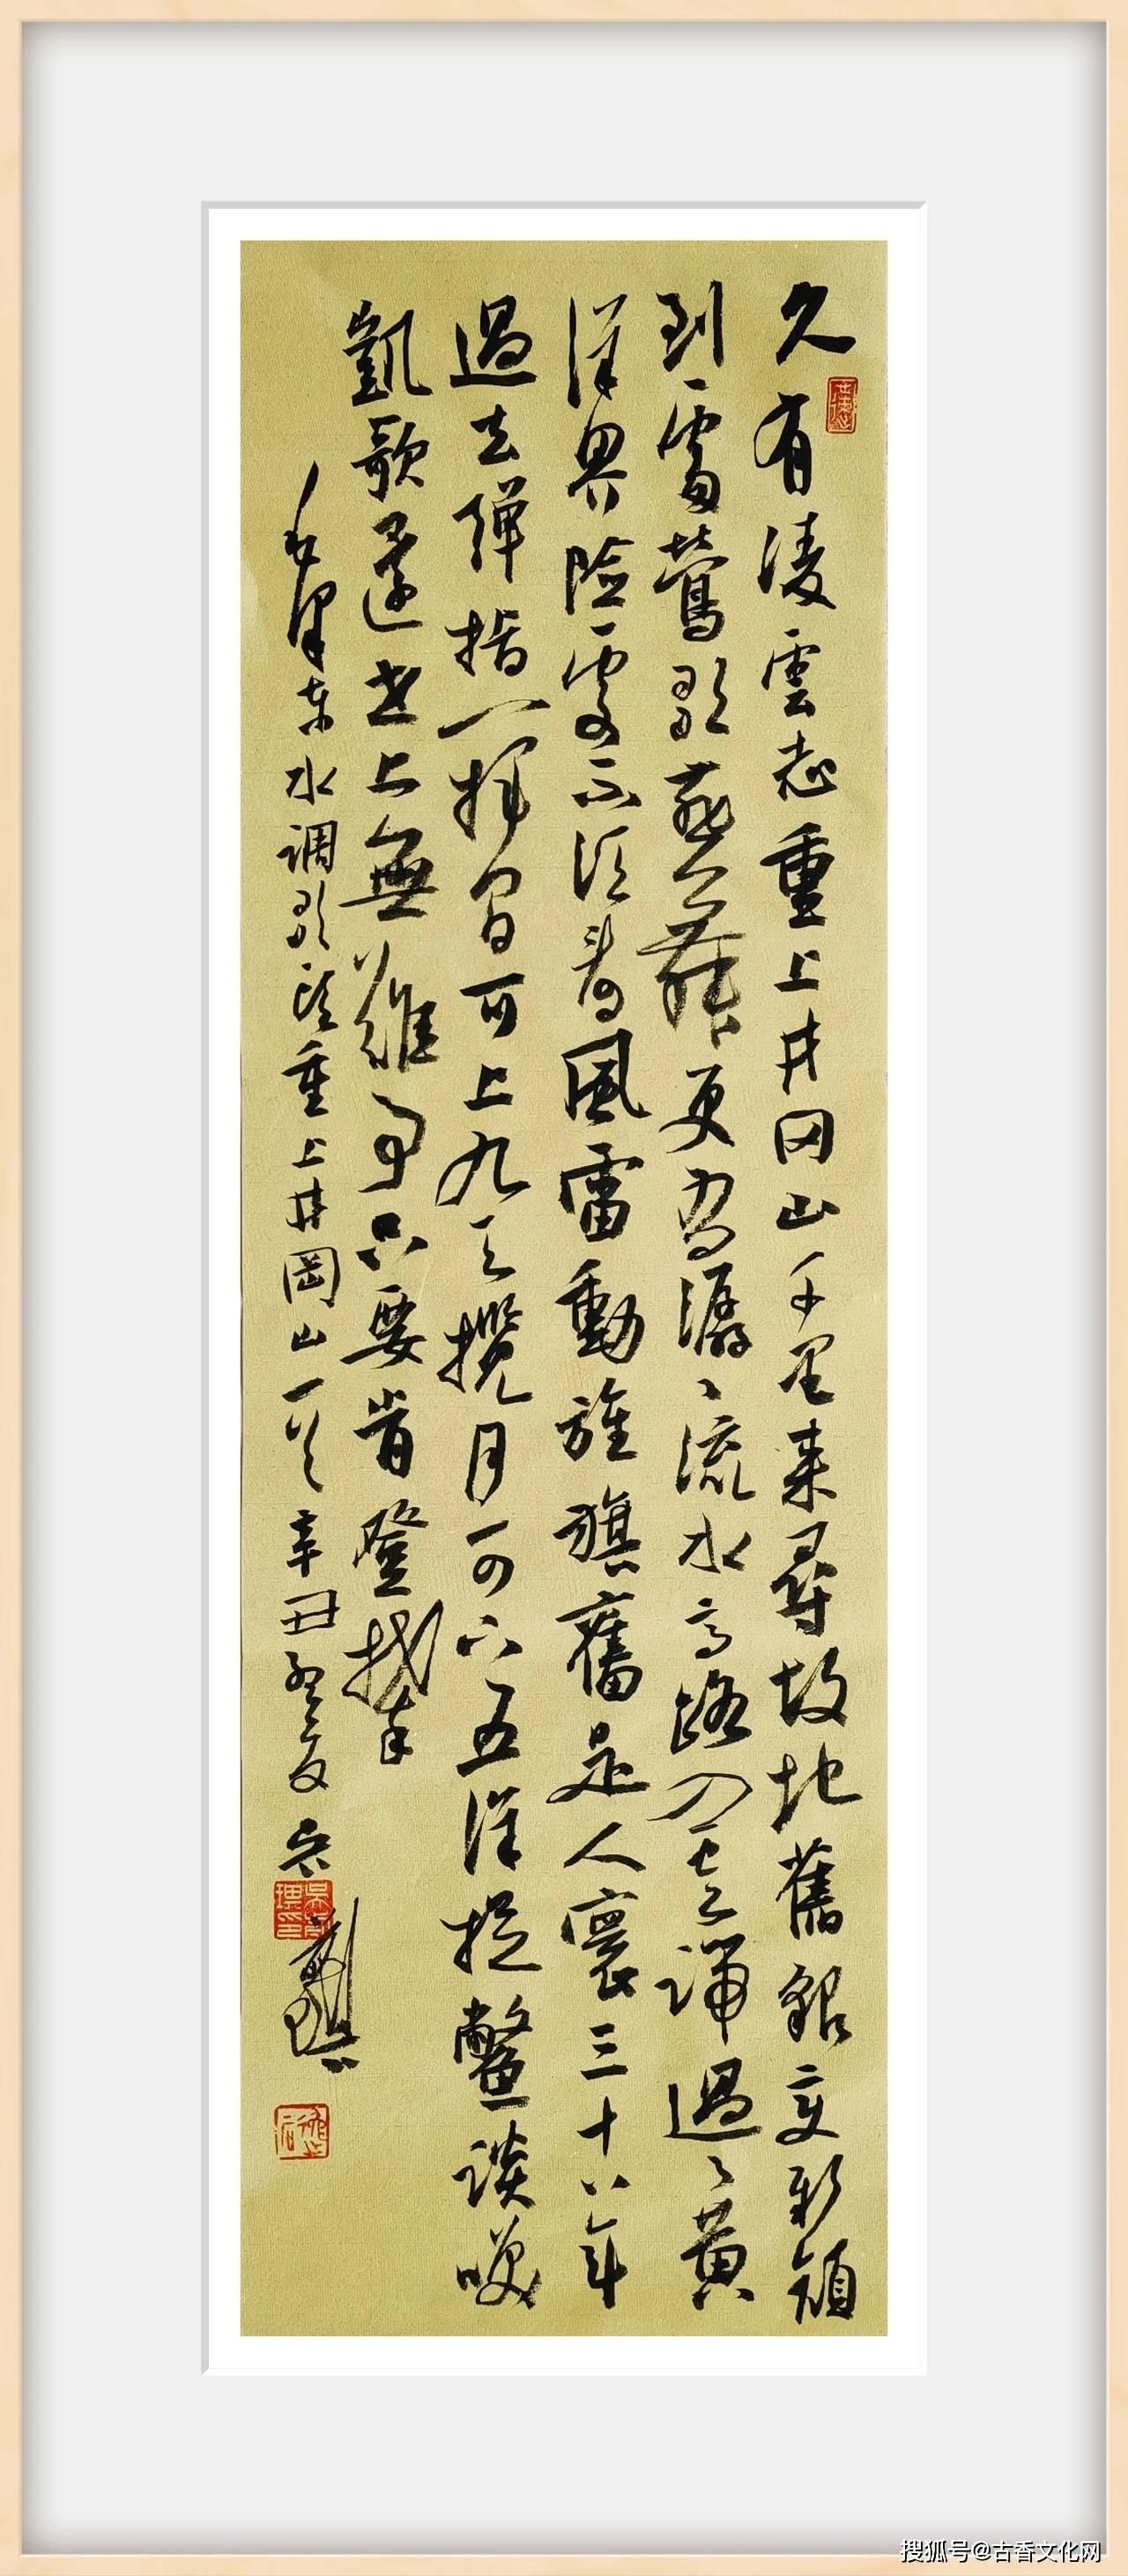 久有凌雲志重上井冈山千里来尋故地舊貌变新顔
到處鶯歌燕舞更有潺〻流水高路入雲端過了黄
洋界險處不須看風雷動旌旗舊是人寰三十八年
過去彈指一揮間可上九天攬月可下五洋捉鱉談笑
凱歌還世上無難事只要肯登攀
毛澤东水调歌頭重上井岡山一首辛丑夏
搜狐号@古香文化网